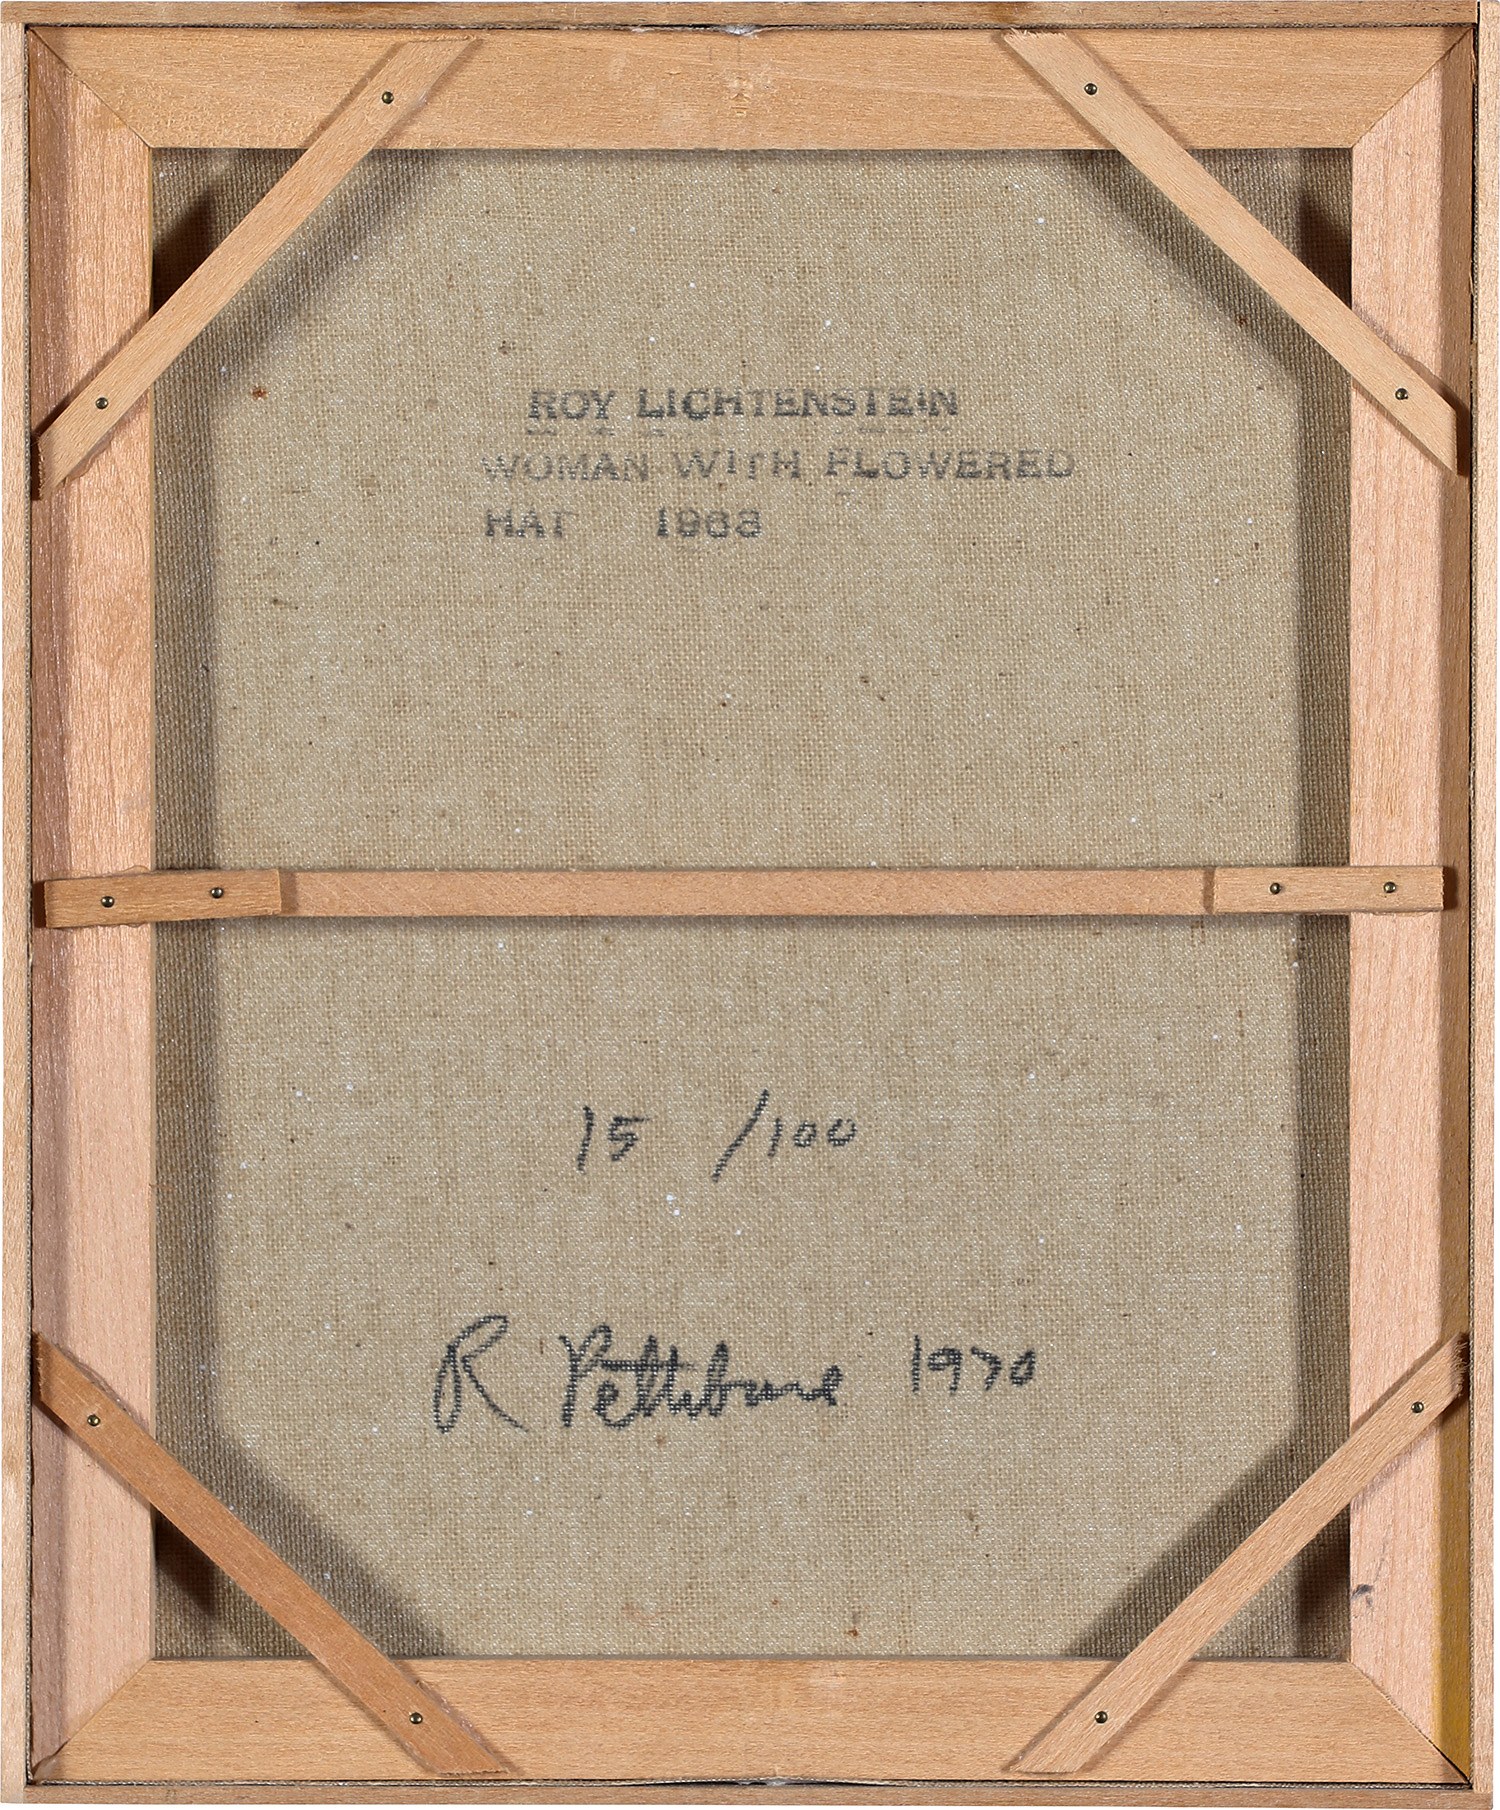 ROY LICHTENSTEIN
WOMAN WITH FLOWERED
HAT 1963
15 /100
R Pettibone 1970